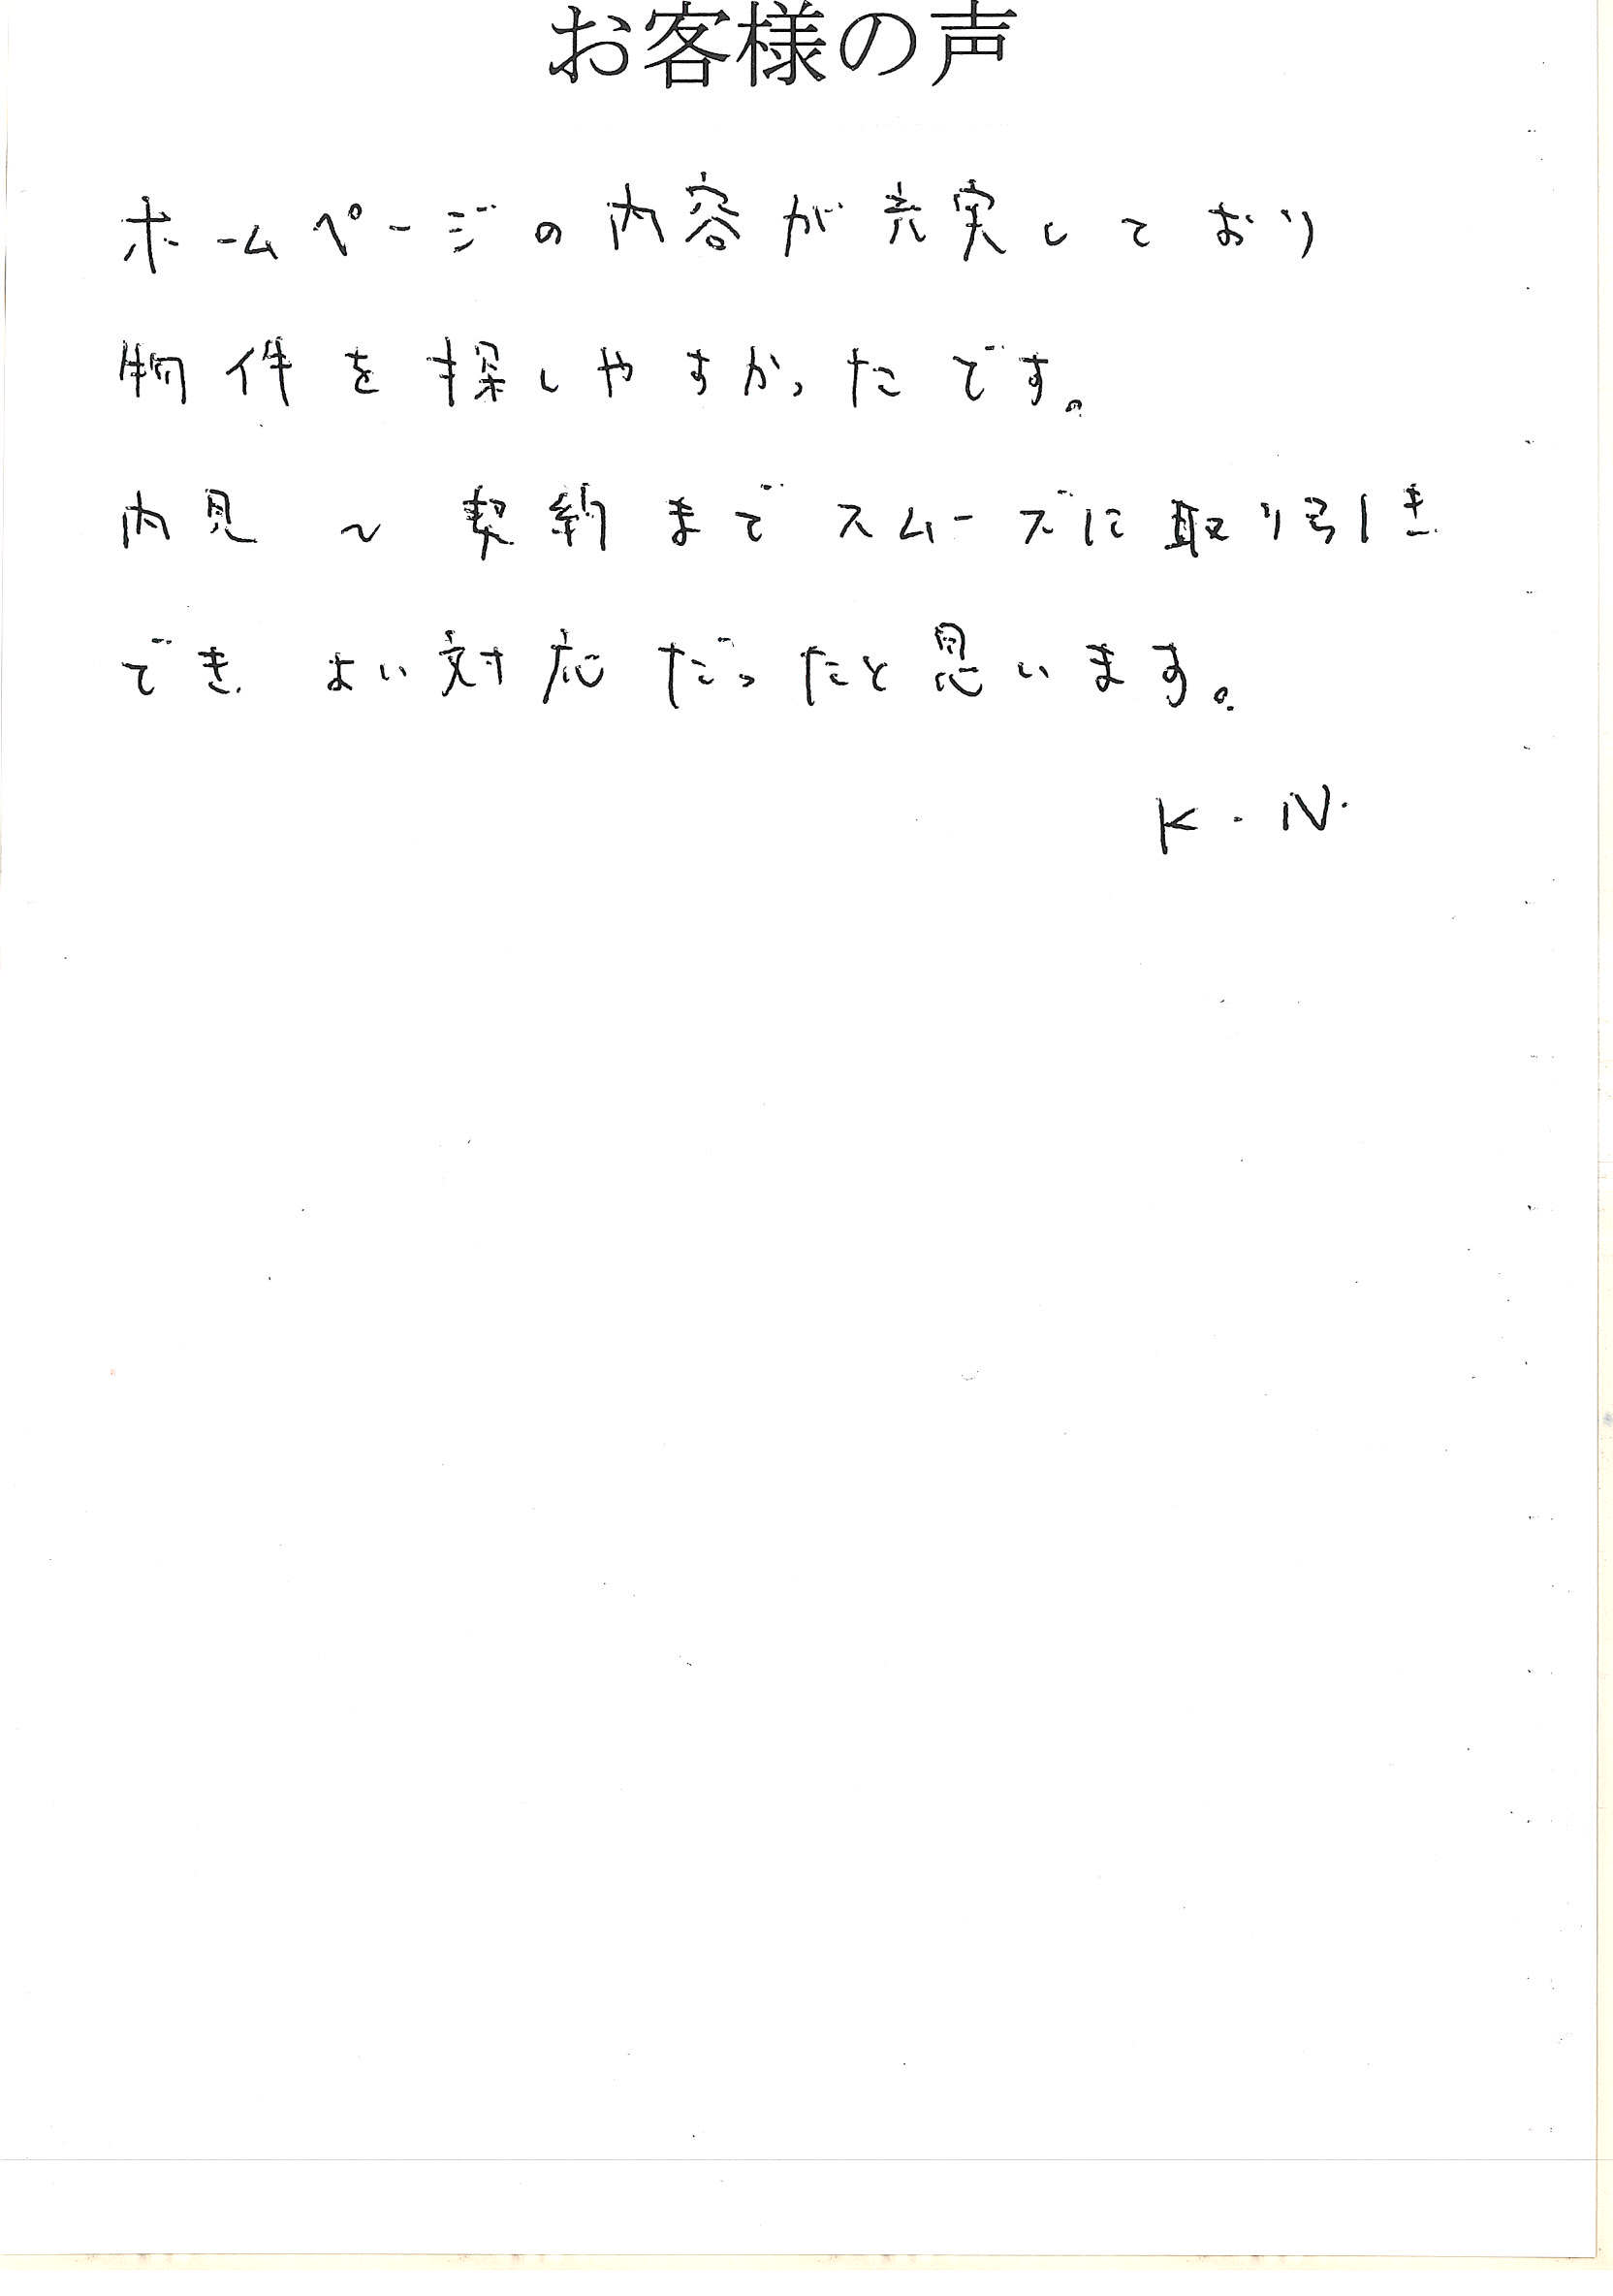 お客様の声
ホームページの内容が充実しており
物件を探しやすかったです。
内見～契約までスムーズに取り引き
でき よい対応だったと思います。
K・N